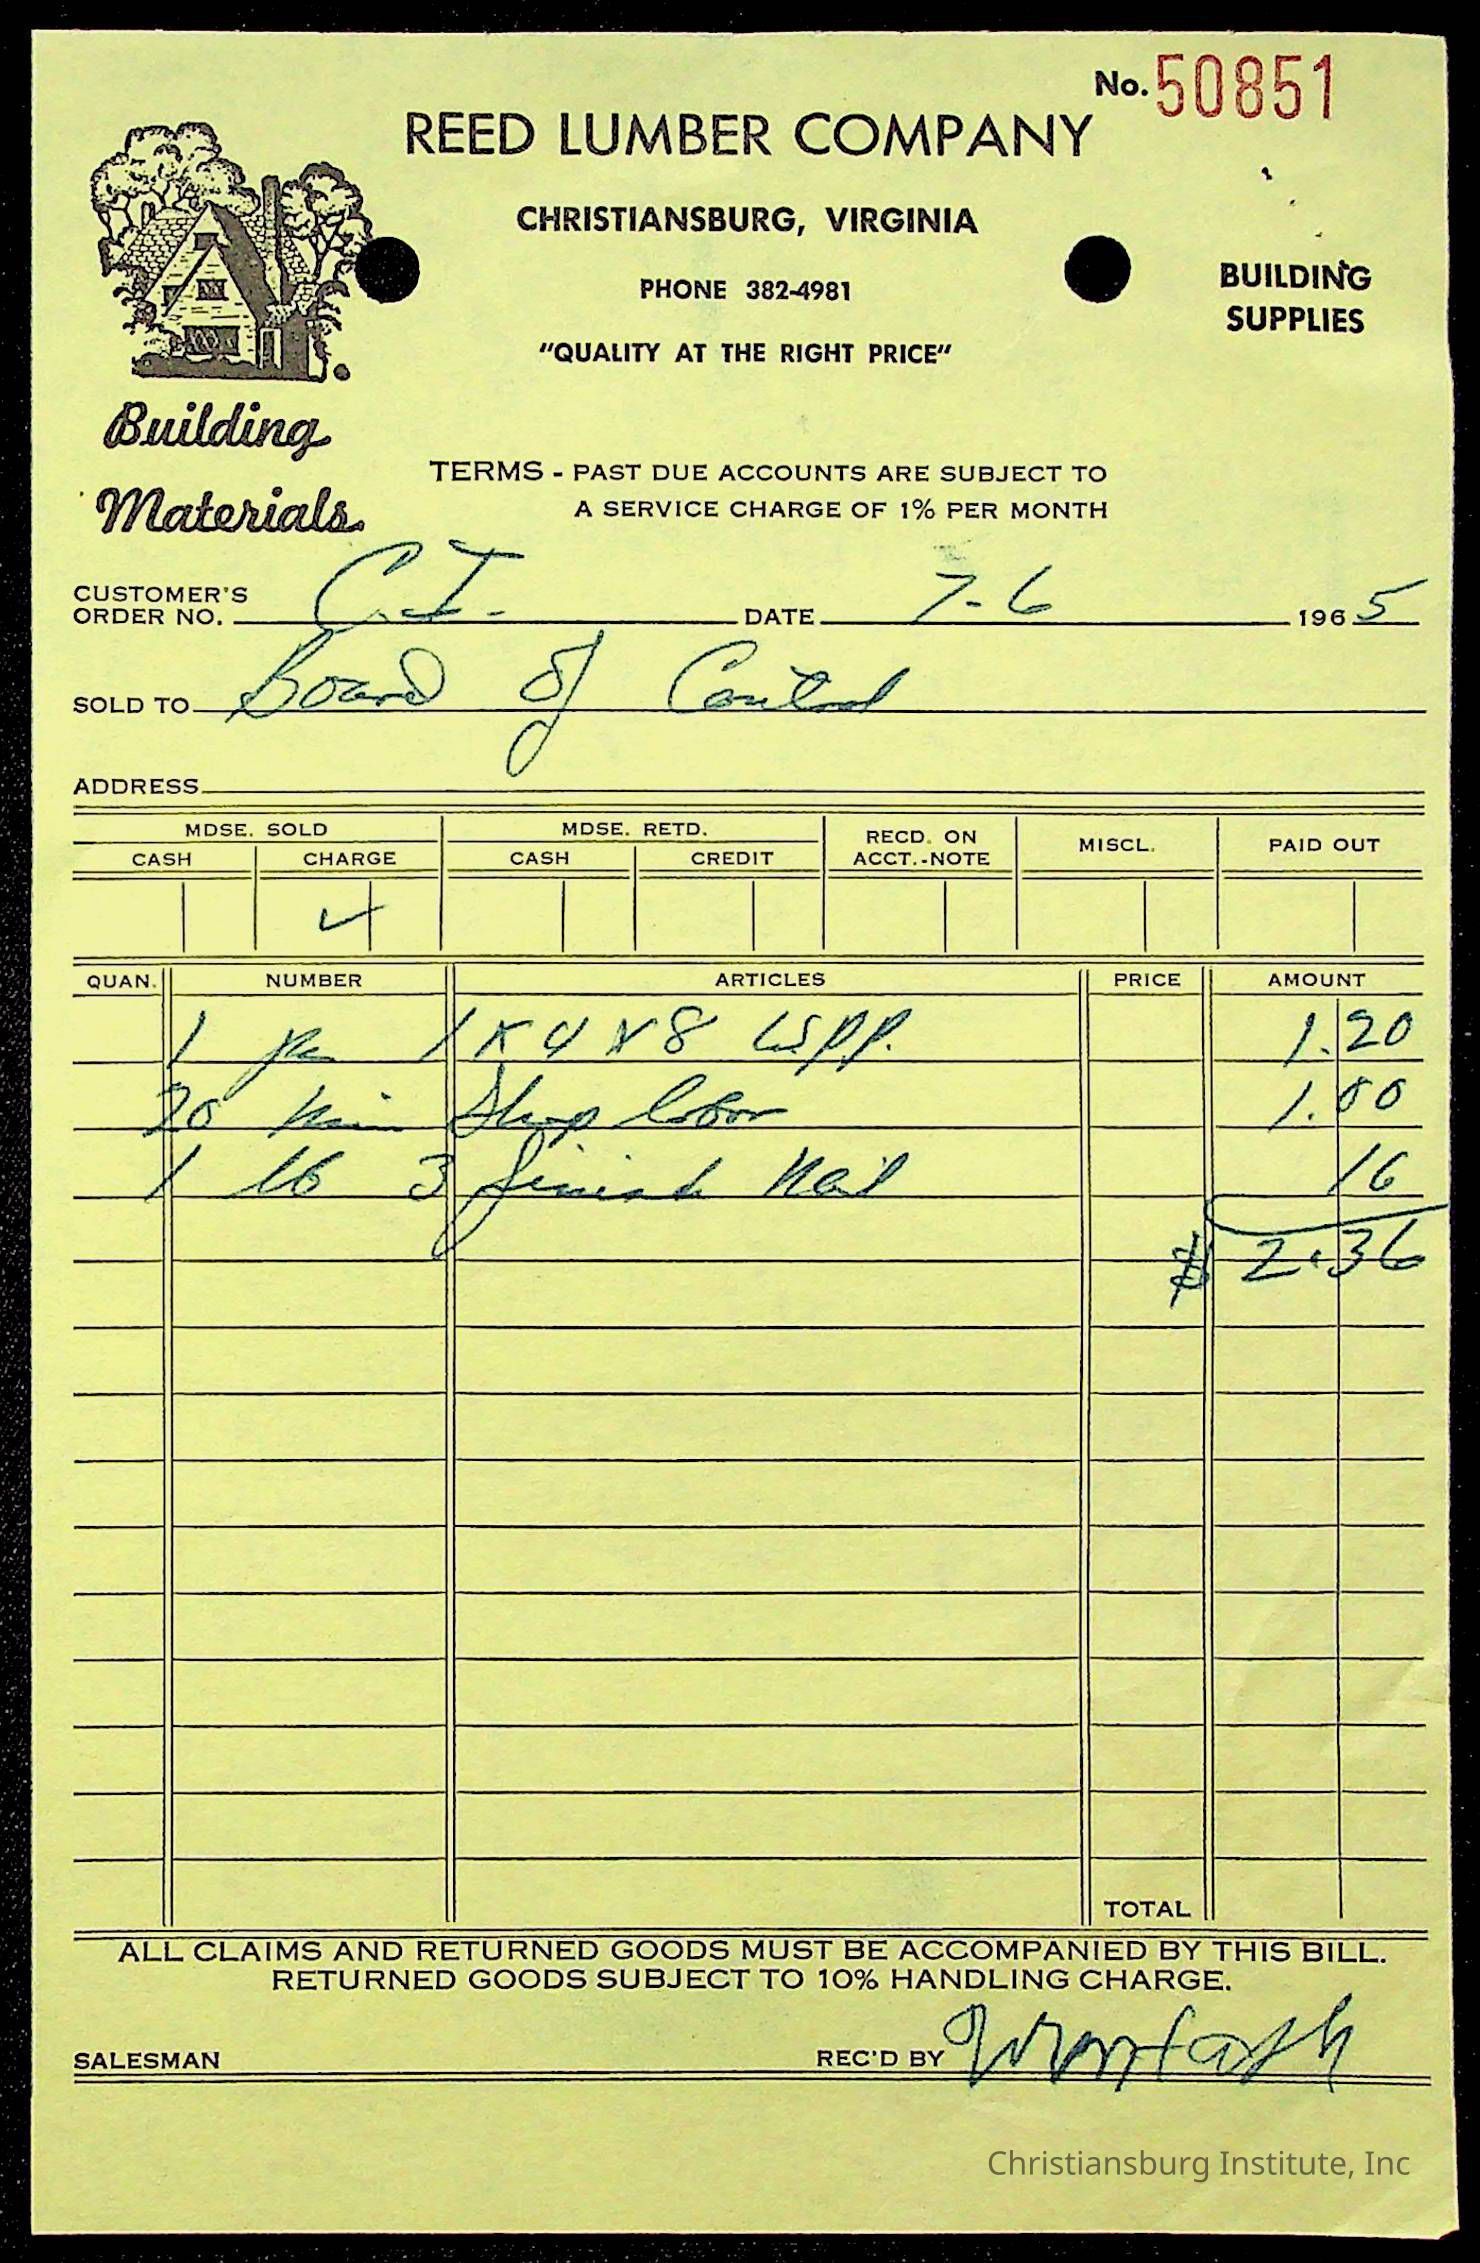 No. 50851
REED LUMBER COMPANY
CHRISTIANSBURG, VIRGINIA
PHONE 382-4981
"QUALITY AT THE RIGHT PRICE"
BUILDING
SUPPLIES
Building
Materials
TERMS - PAST DUE ACCOUNTS ARE SUBJECT TO
A SERVICE CHARGE OF 1% PER MONTH
CUSTOMER'S
ORDER NO. C.I. DATE 7-6 1965
SOLD TO Board of Control
ADDRESS
MDSE. SOLD MDSE. RETD. RECD. ON ACCT.-NOTE MISCL. PAID OUT
CASH CHARGE CASH CREDIT
✓
QUAN. NUMBER ARTICLES PRICE AMOUNT
1 pc 1 x 4 x 8 WPP. 1.20
20 min Shop labor 1.00
1 lb 3 finish Nail 16
$ 2.36
TOTAL
ALL CLAIMS AND RETURNED GOODS MUST BE ACCOMPANIED BY THIS BILL.
RETURNED GOODS SUBJECT TO 10% HANDLING CHARGE.
SALESMAN REC'D BY
Christiansburg Institute, Inc